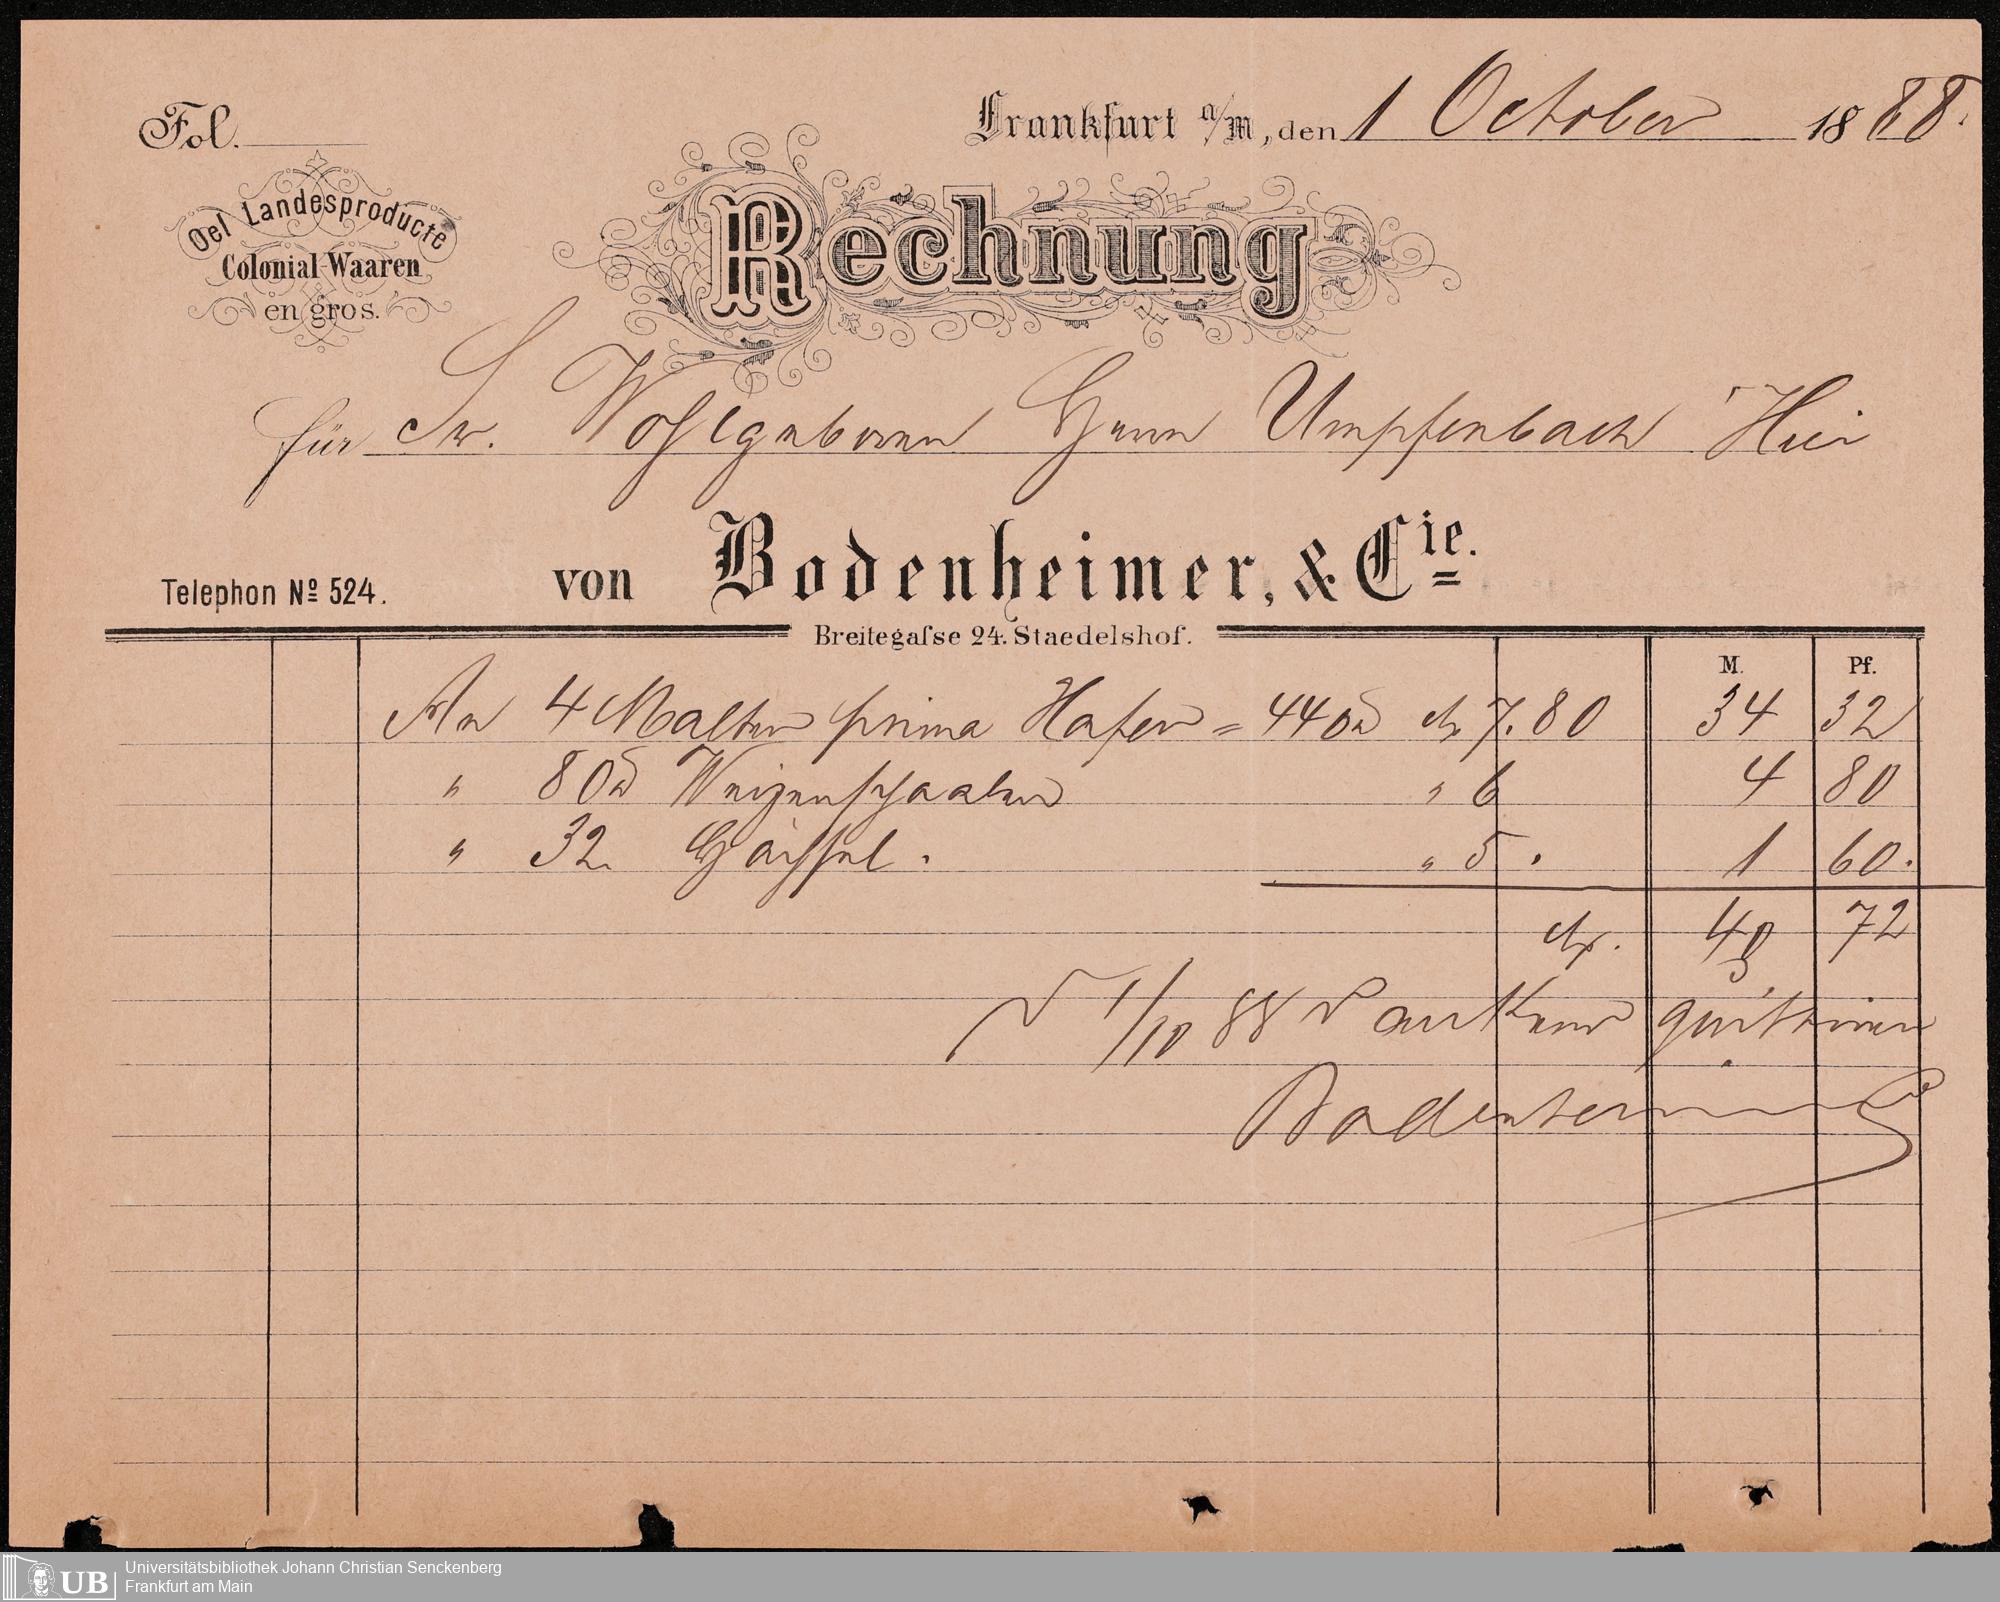 Fol.
Frankfurt a/M, den 1 October 1888.
Oel Landesproducte
Colonial-Waaren
en gros.
Rechnung
für Sr. Wohlgeboren Herrn Umpfenbach Hier
Telephon No 524.
von Bodenheimer, & Cie.
Breitegaſse 24. Staedelshof.
M. Pf.
An 4 Malter prima Hafer = 440 ℔ M 7.80 34 32
" 80 ℔ Weizenschaalen " 6 4 80
" 32 Häcksel. " 5. 1 60.
M. 40 72
1/10 88 Dankend quittiren
Bodenheimer
Universitätsbibliothek Johann Christian Senckenberg
Frankfurt am Main
UB